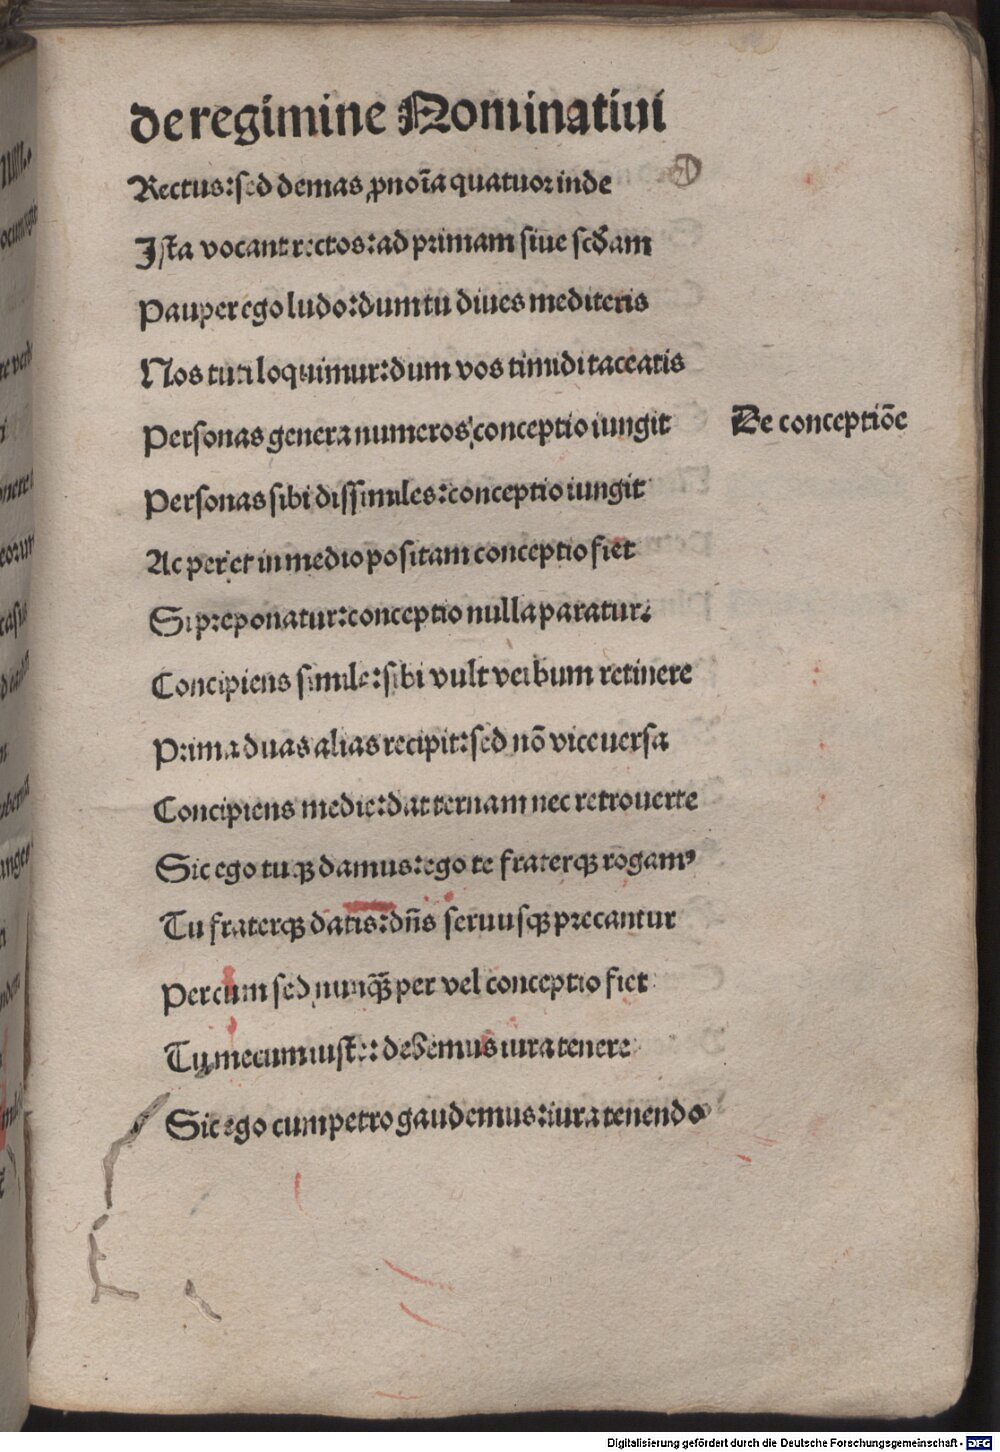 de regimine Nominatiui
Rectus: sed demas ꝓnoīa quatuor inde
Ista vocant rectos: ad primam siue scđam
Pauper ego ludo: dum tu diues mediteris
Nos tuti loquimur: dum vos timidi taceatis
Personas genera numeros: conceptio iungit
De conceptiōe
Personas sibi dissimiles: conceptio iungit
Ac per et in medio positam conceptio fiet
Si preponatur: conceptio nulla paratur:
Concipiens simile: sibi vult verbum retinere
Prima duas alias recipit: sed nō vice uersa
Concipiens medie: dat ternam nec retrouerte
Sic ego tuqꝫ damus: ego te fraterqꝫ rogamꝰ
Tu fraterqꝫ datis: dn̄s seruusqꝫ precantur
Per cum sed nunqꝫ̄ per vel conceptio fiet
Tu mecum iuste: debemus iura tenere
Sic ego cum petro gaudemus: iura tenendo
Digitalisierung gefördert durch die Deutsche Forschungsgemeinschaft - DFG